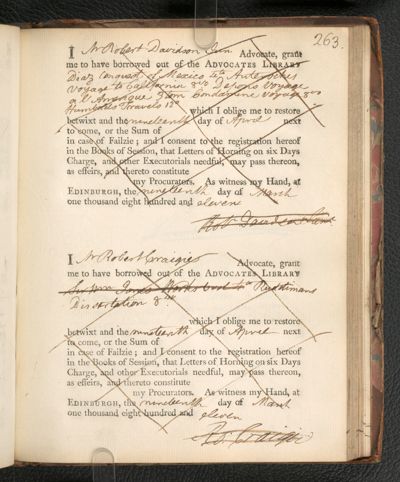 263.
I Mr Robert Davidson Jun Advocate, grant
me to have borrowed out of the ADVOCATES LIBRARY
Diaz conquest of Mexico 4to
Voyage to California 8vo Voyage
Voyage 8vo
Travels 12o
which I oblige me to restore
betwixt and the nineteenth day of April next
to come, or the Sum of
in case of Failzie; and I consent to the registration hereof
in the Books of Session, that Letters of Horning on six Days
Charge, and other Executorials needful, may pass thereon,
as effeirs, and thereto constitute
my Procurators. As witness my Hand, at
EDINBURGH, the nineteenth day of March
one thousand eight hundred and eleven
I Mr Robert Craigie Advocate, grant
me to have borrowed out of the ADVOCATES LIBRARY
Works Ruddimans
Dissertation 8vo
which I oblige me to restore
betwixt and the nineteenth day of April next
to come, or the Sum of
in case of Failzie; and I consent to the registration hereof
in the Books of Session, that Letters of Horning on six Days
Charge, and other Executorials needful, may pass thereon,
as effeirs, and thereto constitute
my Procurators. As witness my Hand, at
EDINBURGH, the nineteenth day of March
one thousand eight hundred and eleven
Craigie